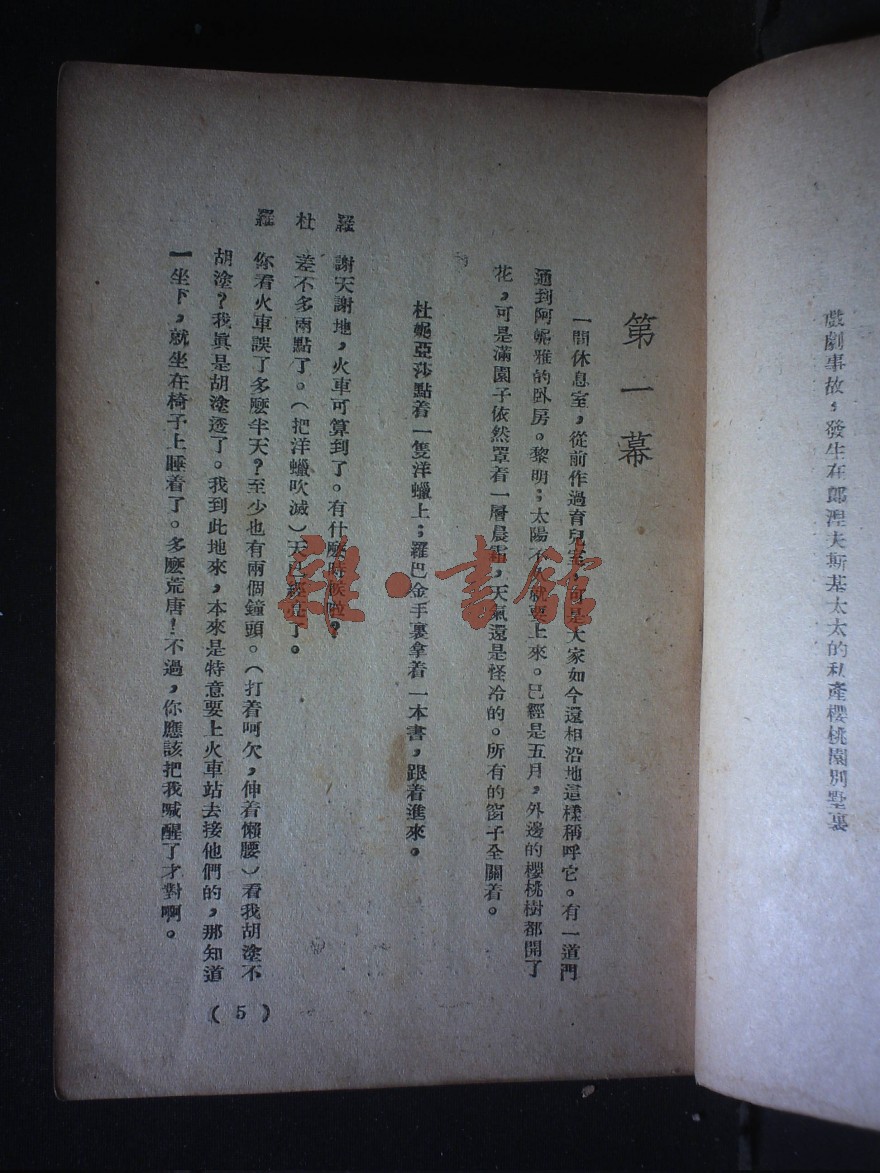 戲劇事故，發生在郎涅夫斯基太太的私產櫻桃園別墅裏
第一幕
一間休息室，從前作過育兒室，可是大家如今還相沿地這樣稱呼它。有一道門
通到阿妮雅的臥房。黎明；太陽不久就要上來。已經是五月，外邊的櫻桃樹都開了
花，可是滿園子依然罩着一層晨霜，天氣還是怪冷的。所有的窗子全關着。
杜妮亞莎點着一隻洋蠟上；羅巴金手裏拿着一本書，跟着進來。
羅 謝天謝地，火車可算到了。有什麽時候啦？
杜 差不多兩點了。（把洋蠟吹滅）天已經亮了。
羅 你看火車誤了多麽半天？至少也有兩個鐘頭。（打着呵欠，伸着懶腰）看我胡塗不
胡塗？我眞是胡塗透了。我到此地來，本來是特意要上火車站去接他們的，那知道
一坐下，就坐在椅子上睡着了。多麽荒唐！不過，你應該把我喊醒了才對啊。
（5）
雜·書館